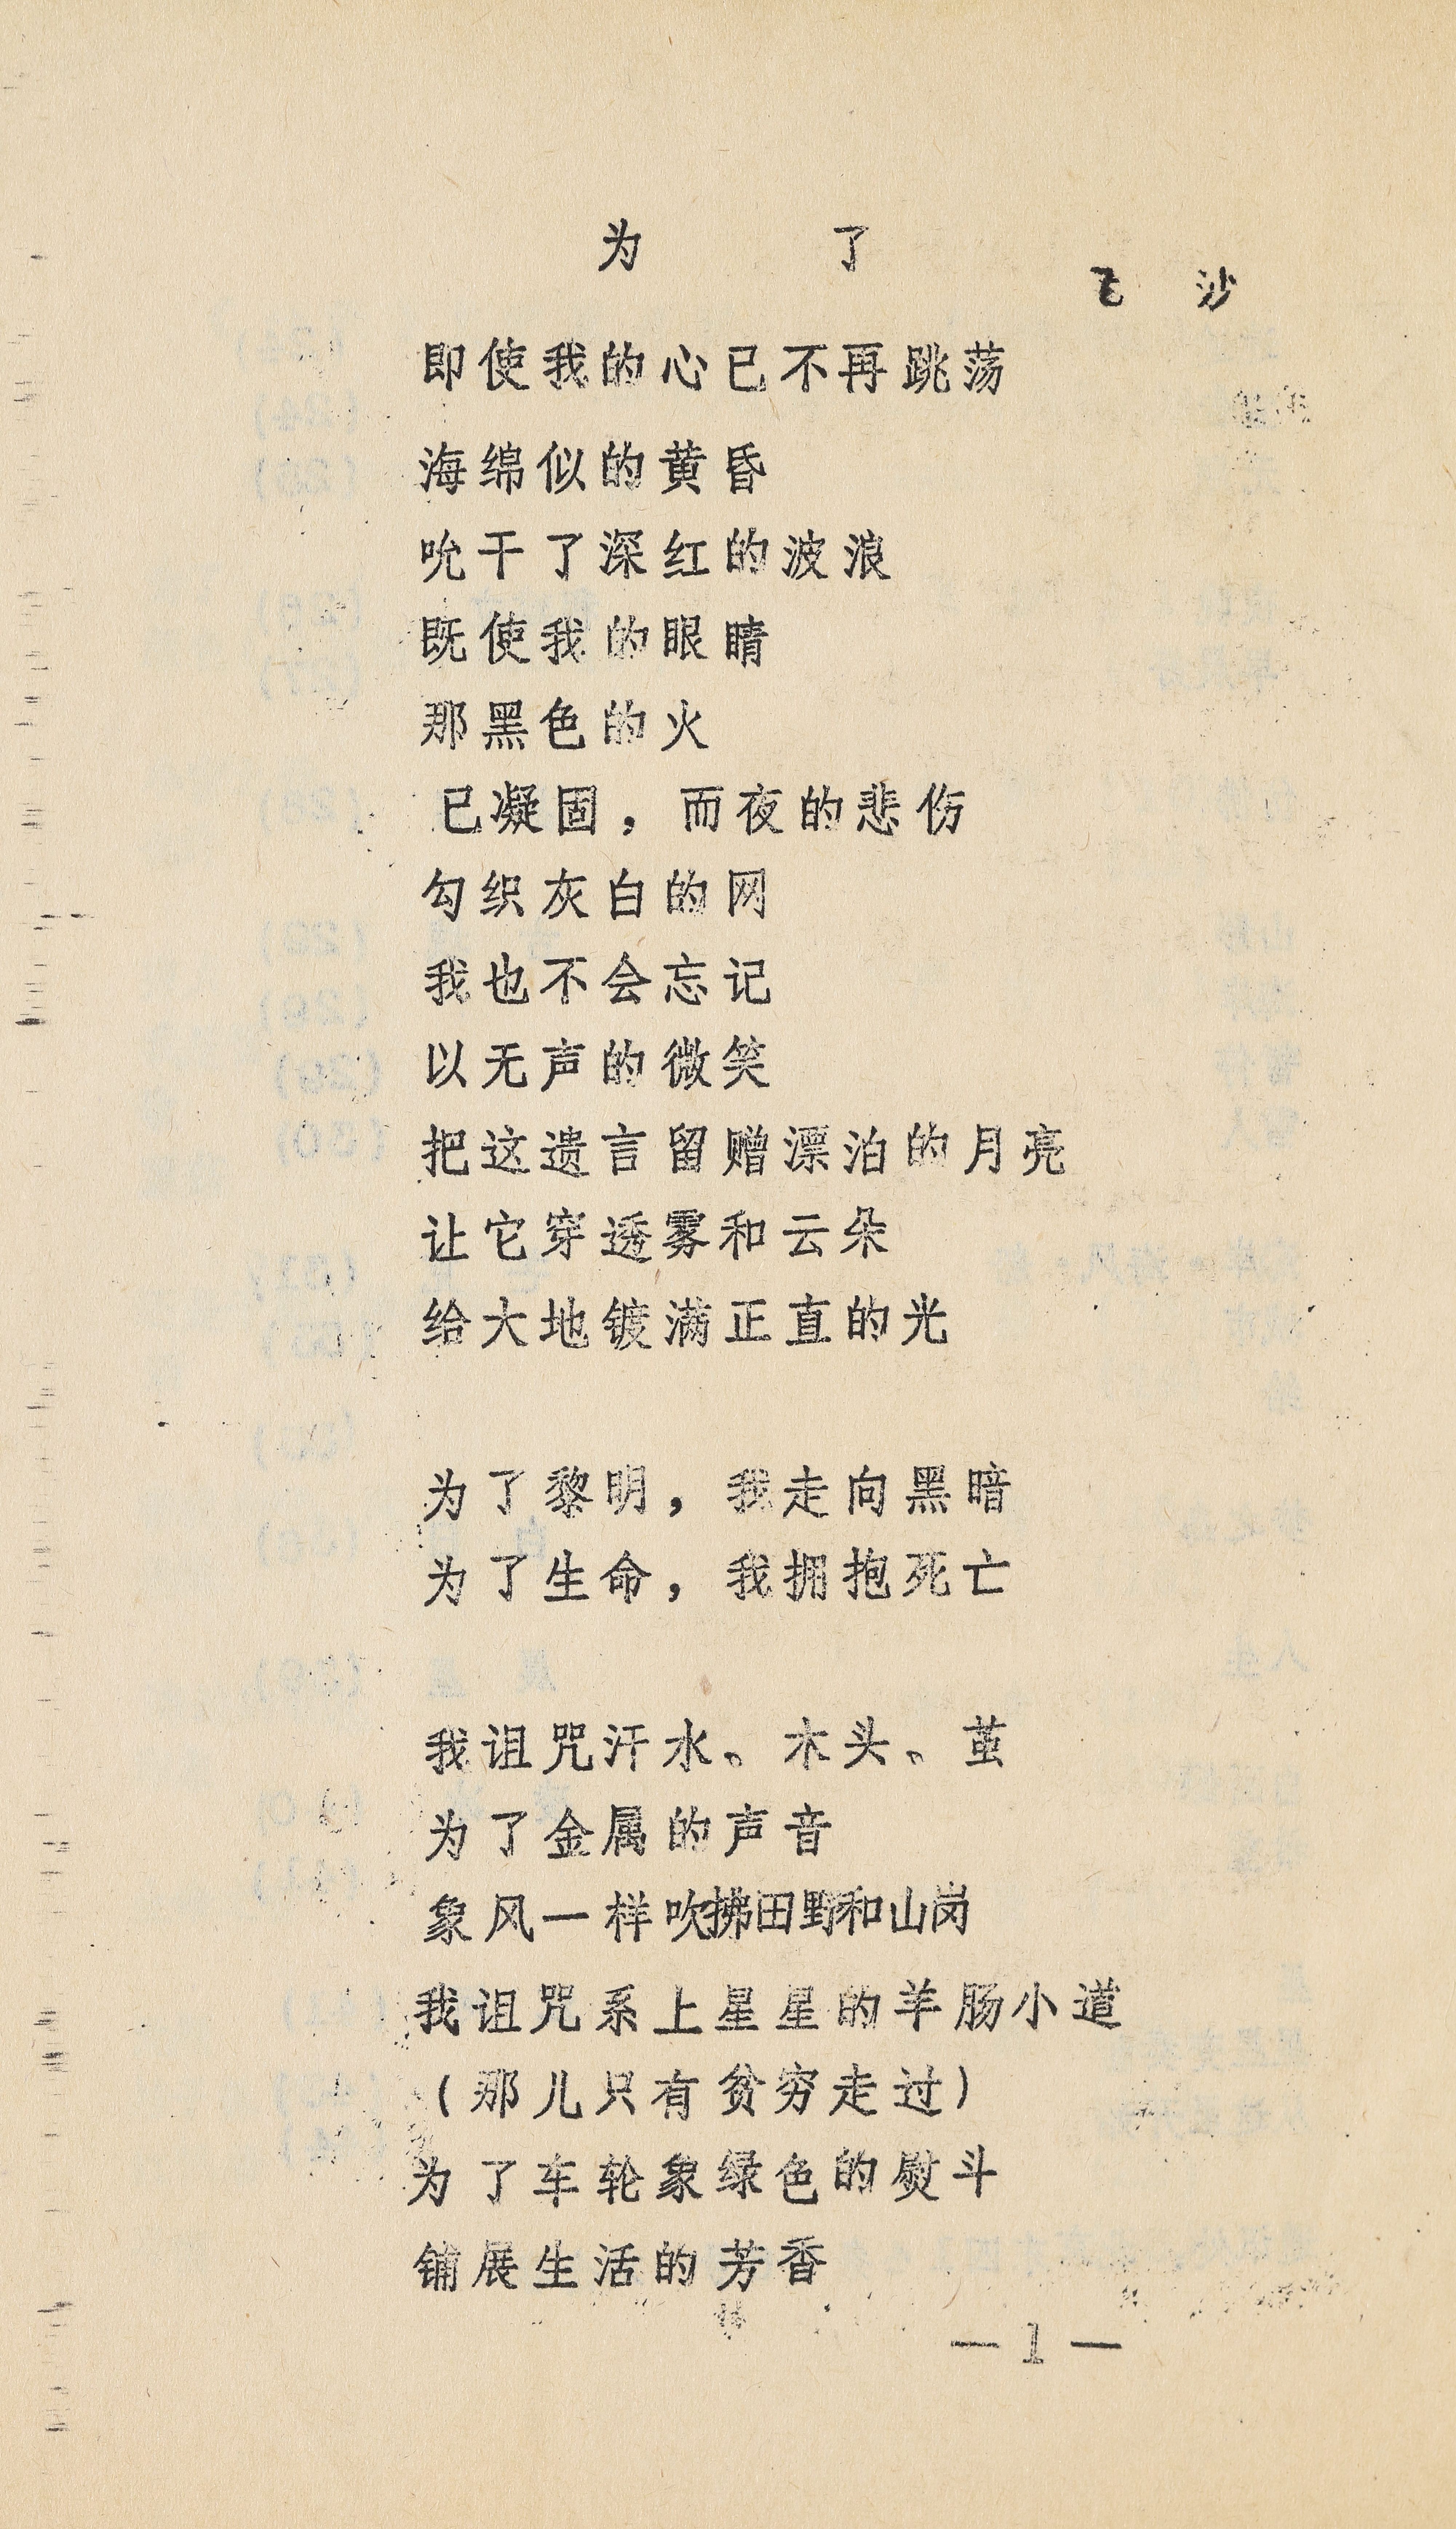 为了
飞沙
即使我的心已不再跳荡
海绵似的黄昏
吮干了深红的波浪
既使我的眼睛
那黑色的火
已凝固，而夜的悲伤
勾织灰白的网
我也不会忘记
以无声的微笑
把这遗言留赠漂泊的月亮
让它穿透雾和云朵
给大地镀满正直的光
为了黎明，我走向黑暗
为了生命，我拥抱死亡
我诅咒汗水、木头、茧
为了金属的声音
象风一样吹拂田野和山岗
我诅咒系上星星的羊肠小道
（那儿只有贫穷走过）
为了车轮象绿色的熨斗
铺展生活的芳香
—1—